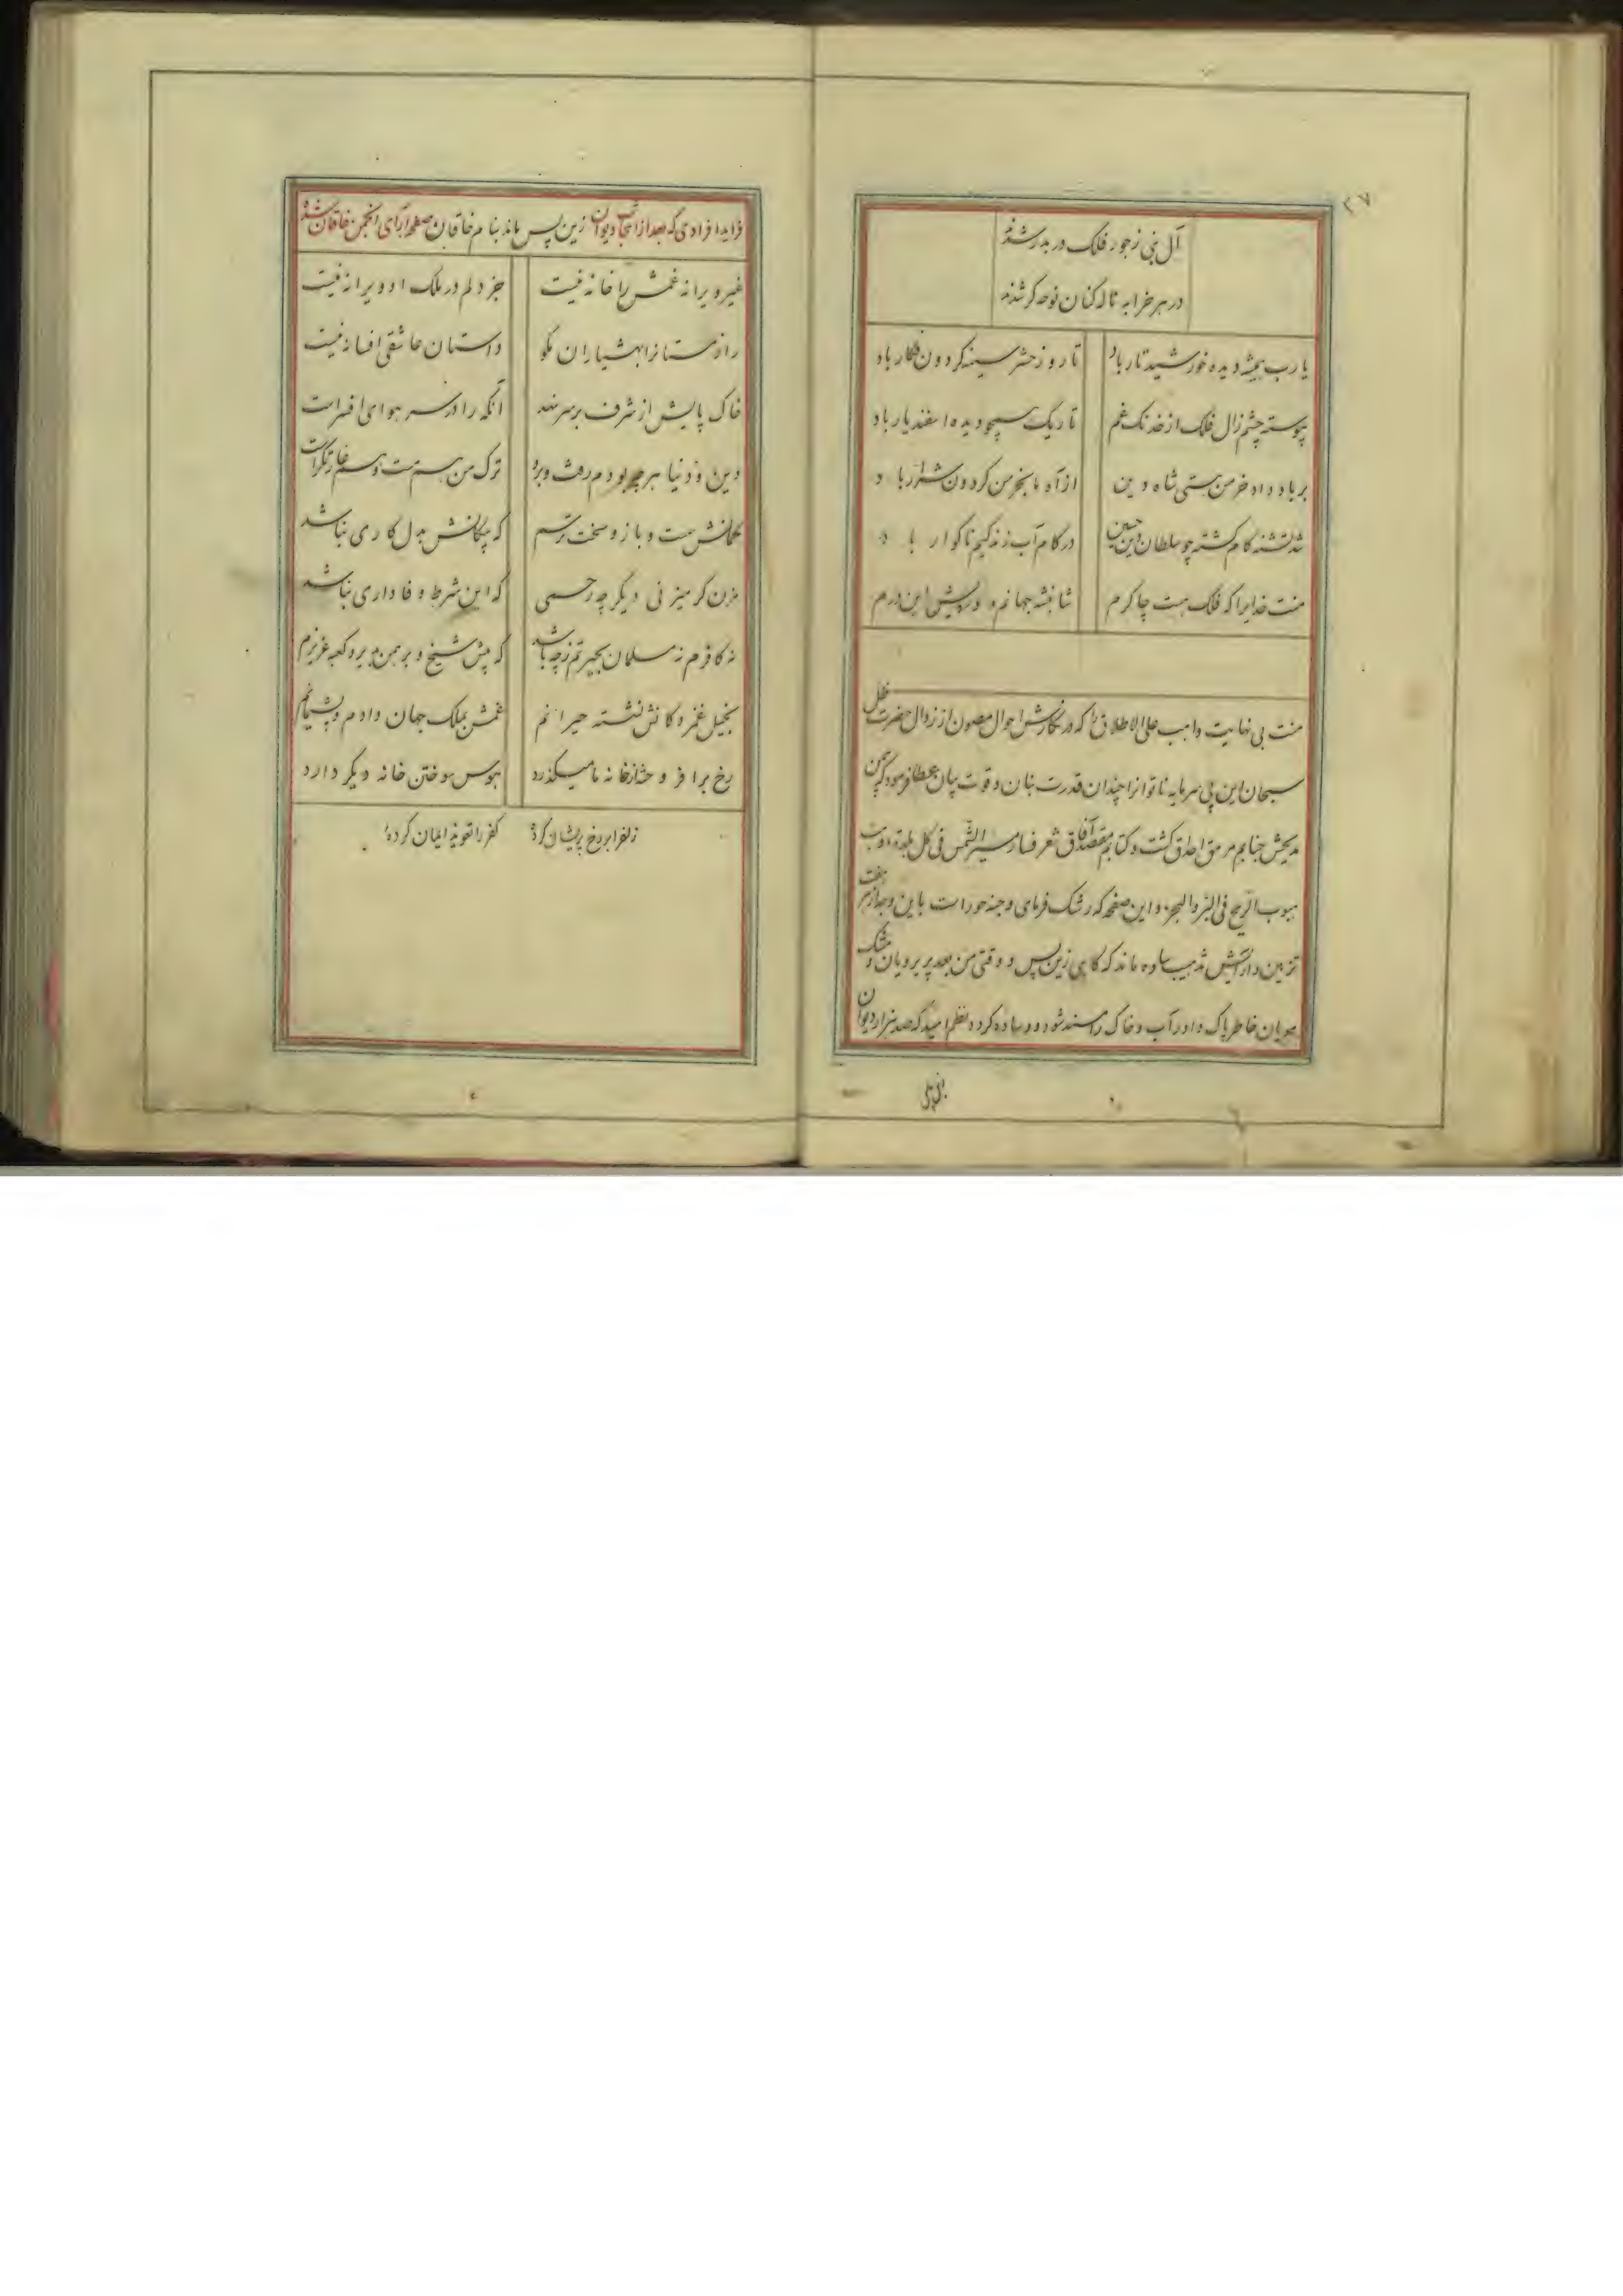 ۲۷
آل نبی ز جور فلک در بدر شدند
در هر خرابه ناله کنان نوحه گر شدند
یا رب همیشه دیده خورشید تار باد تا روز حشر سینه گردون فکار باد
پیوسته چشم زال فلک از خدنگ غم تاریک همچو دیده اسفندیار باد
بر باد داد خرمن هستی شاه دین از آه ما بخرمن گردون شرار باد
شد تشنه کام کشته چو سلطان دین حسین در کام آب زندگیم ناگوار باد
منت خدایرا که فلک هست چاکرم شاهنشه جهانم و درویش این درم
منت بی نهایت واهب علی الاطلاق را که در نگارش احوال مصون از زوال حضرت ظل
سبحان این بی سرمایه ناتوانرا چندان قدرت بنان و قوت بیان عطا فرمود که بیمن
مدیحش جنابم مرمق احداق گشت و کتابم مقصد آفاق شعر فسار مسیر الشمس فی کل بلدة وهبت
هبوب الریح فی البر والبحر و این صفحه که رشک فرمای وجنه حور است باین وجه از هر هفت
تزیین و آرایش تذهیب ساده ماند که گاهی زین پس و وقتی من بعد پریرویان مشک
مویان خاطر پاک داور آب و خاک را مسند شود و وساده گردد نظم امید که صد هزار دیوان
فراید افرادی که بعد از انتخاب دیوان زین پس ماند بنام خاقان صفحه آرای انجمن خاقان شد
غیر ویرانه غمش را خانه نیست جز دلم در ملک او ویرانه نیست
راز مستانرا بهشیاران مگو داستان عاشقی افسانه نیست
خاک پایش از شرف بر سر نهد آنکه را در سر هوای افسر است
دین و دنیا هر چه بودم رفت و برد ترک من هم مست و هم غارتگر است
کمانش سست و بازو سخت ترسم که پیکانش بدل کاری نباشد
مزن گر میزنی دیگر چه رحمی که این شرط وفا داری نباشد
نه کافرم نه مسلمان بحیرتم ز چه باشد که پیش شیخ و برهمن بدیر و کعبه عزیزم
بخیل غمزه کانش نشسته حیرانم غمش بملک جهان دادم و پشیمانم
رخ بر افروخته از خانه ما میگذرد هوس سوختن خانه دیگر دارد
زلف را بر رخ پریشان کرده کفر را تعویذ ایمان کرده